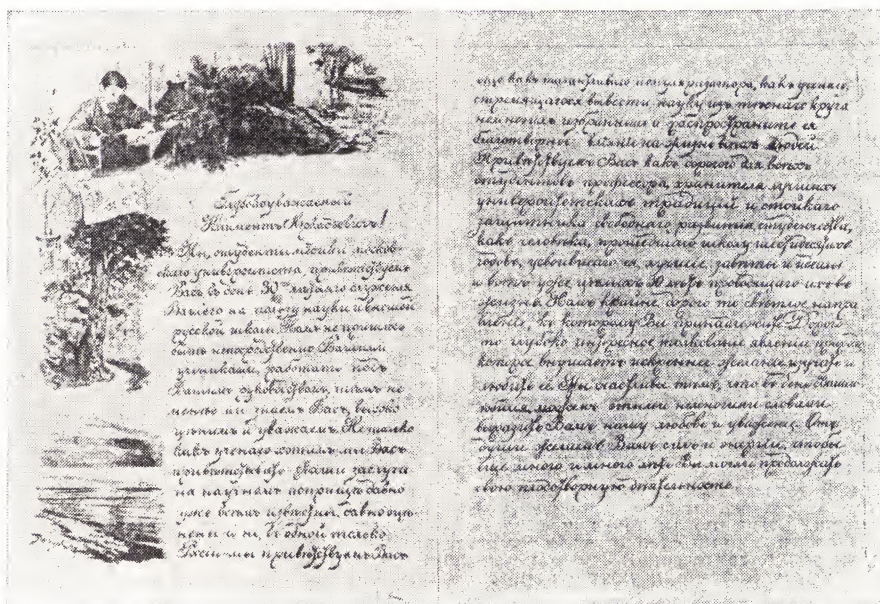 Глубокоуважаемый
Климентъ Аркадьевичъ!
Мы, студенты-медики москов-
скаго университета, привѣтствуемъ
Васъ въ день 30ти лѣтняго служенія
Вашего на пользу науки и высшей
русской школы. Намъ не пришлось
быть непосредственно Вашими
учениками, работать подъ
Вашимъ руководствомъ, тѣмъ не
менѣе мы знаемъ Васъ, высоко
цѣнимъ и уважаемъ. Не только
какъ ученаго хотимъ мы Васъ
привѣтствовать. Ваши заслуги
на научномъ поприщѣ давно
уже всѣмъ извѣстны, давно оцѣ-
нены и не въ одной только
Россіи – мы привѣтствуемъ Васъ
еще какъ талантливаго популяризатора, какъ ученаго,
стремящагося вывести науку изъ тѣснаго круга
немногихъ избранныхъ и распространить ея
благотворное вліяніе на жизнь всѣхъ людей
Привѣтствуемъ Васъ какъ дорогого для всѣхъ
студентовъ профессора, хранителя лучшихъ
университетскихъ традицій и стойкаго
защитника свободнаго развитія студенчества,
какъ человѣка, прошедшаго школу шестидесятыхъ
годовъ, усвоившаго ея лучшіе завѣты и идеалы
и вотъ уже цѣлыхъ 30 лѣтъ проводящаго ихъ въ
жизнь. Намъ крайне дорого то свѣтлое напра
вленіе, къ которому Вы принадлежите. Дорого
то глубоко интересное толкованіе явленій природы
которое внушаетъ искреннее желаніе изучать и
любить ее. Мы счастливы тѣмъ, что въ день Вашего
юбилея можемъ этими немногими словами
выразить Вамъ нашу любовь и уваженіе. Отъ
души желаемъ Вамъ силъ и энергіи, чтобы
еще много и много лѣтъ Вы могли продолжать
свою плодотворную дѣятельность.